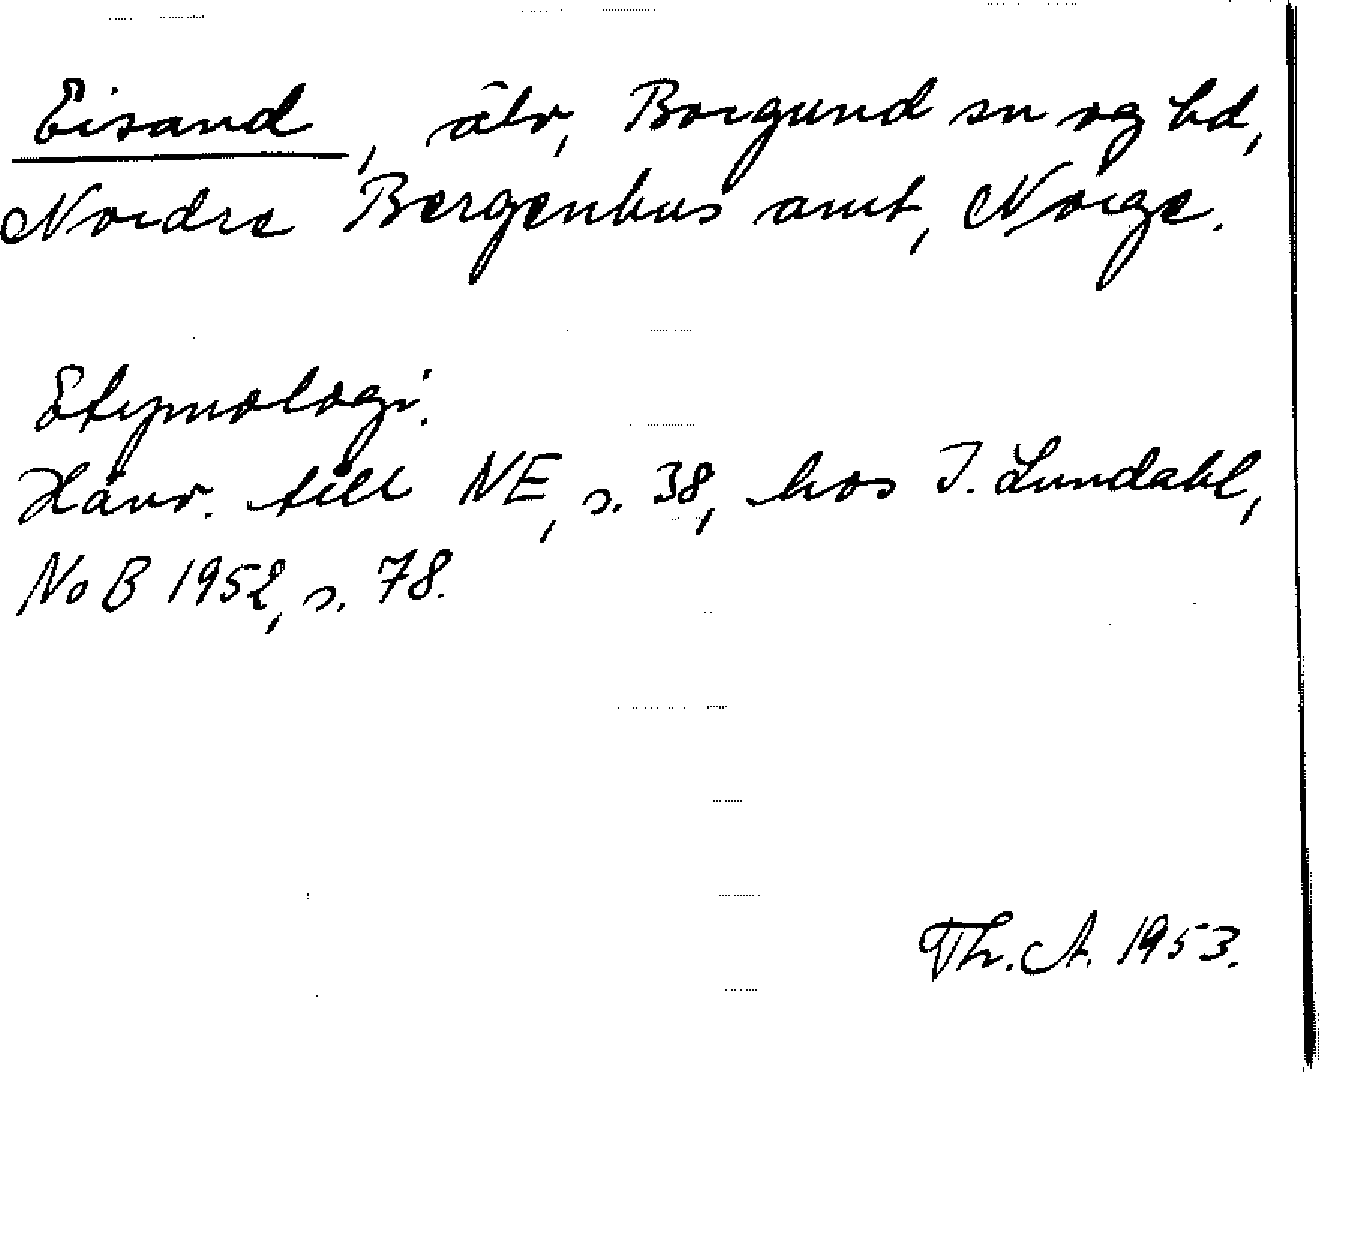 Eisand, älv, Borgund sn og hd,
Nordre Bergenhus amt, Norge.
Etymologi.
Hänv. till NE, s. 38, hos I. Lundahl,
NoB 1952, s. 78.
Th. A. 1953.